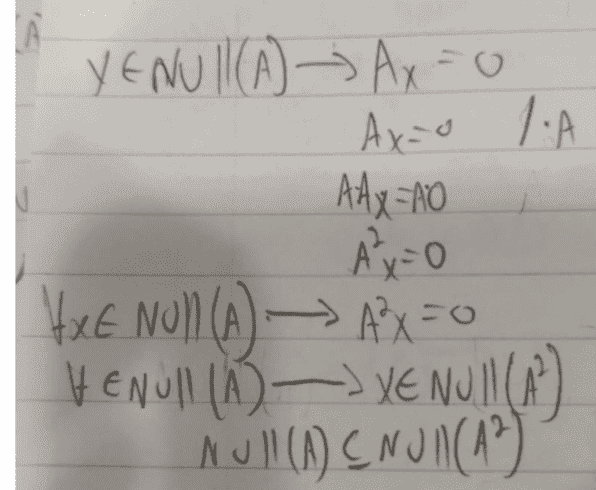 x ∈ Null(A) → Ax = 0
Ax = 0 /·A
AAx = A0
A²x = 0
∀x ∈ Null(A) → A²x = 0
∀ ∈ Null(A) → x ∈ Null(A²)
Null(A) ⊆ Null(A²)